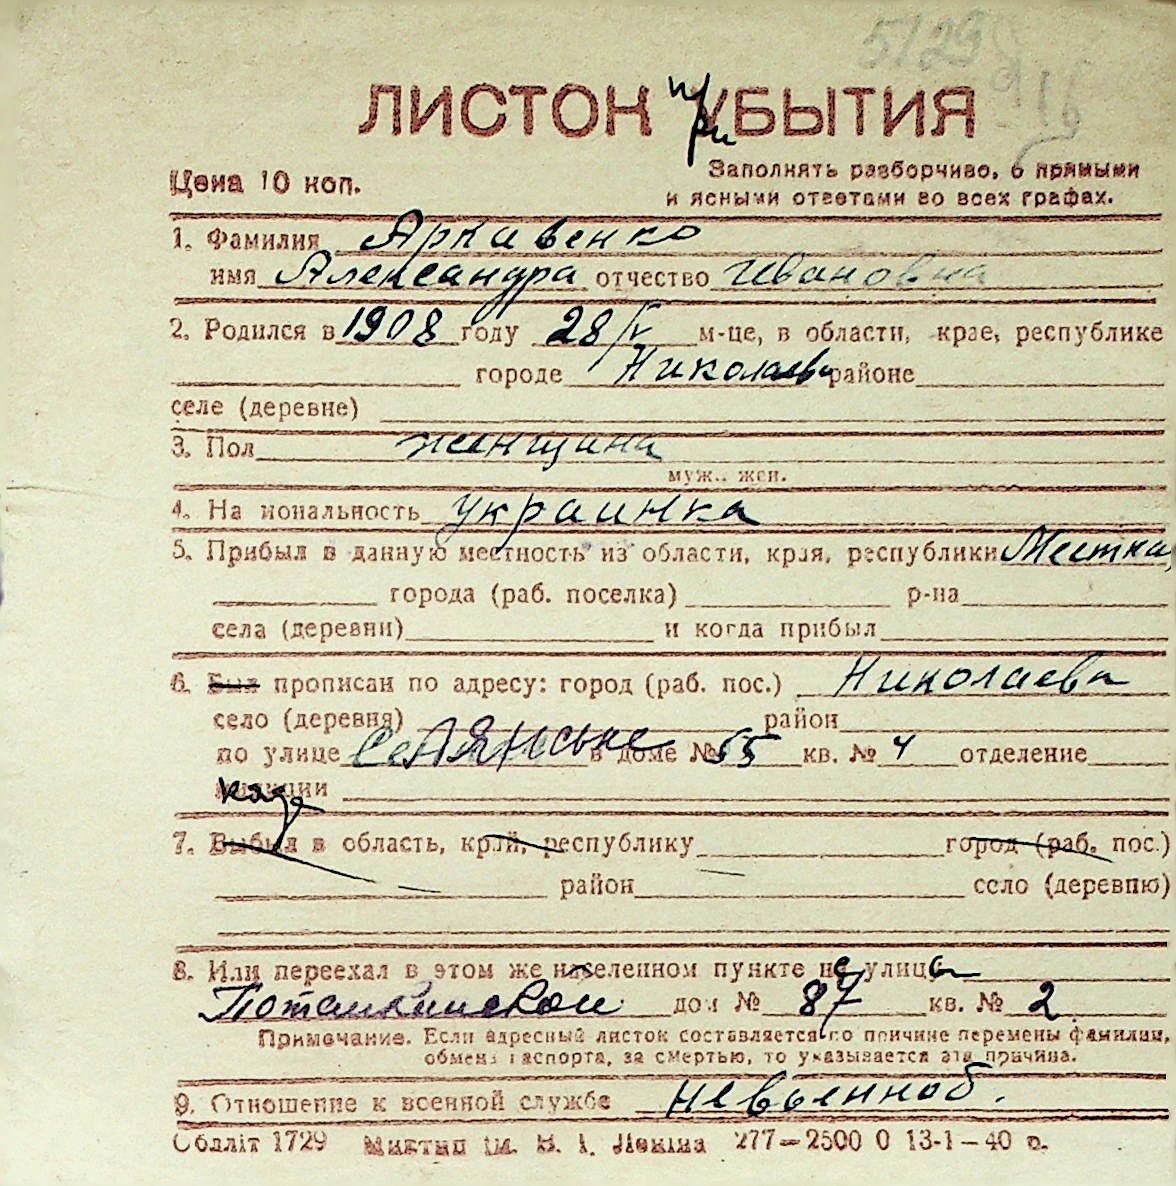 5123
916
ЛИСТОН при УБЫТИЯ
Цена 10 коп.
Заполнять разборчиво, с прямыми
и ясными ответами во всех графах.
1. Фамилия Аркавенко
имя Александра отчество Ивановна
2. Родился в 1908 году 28/V м-це, в области, крае, республике
городе Николаев районе
селе (деревне)
3. Пол женщина
муж., жен.
4. На иональность украинка
5. Прибыл в данную местность из области, края, республики Местная
города (раб. поселка) р-на
села (деревни) и когда прибыл
6. Был прописан по адресу: город (раб. пос.) Николаев
село (деревня) район
по улице Селянське в доме № 55 кв. № 4 отделение
7. Выбыл в область, край, республику город (раб. пос.)
район село (деревню)
8. Или переехал в этом же населенном пункте не улице
Потемкинской дом № 87 кв. № 2
Примечание. Если адресный листок составляется по причине перемены фамилии,
обмена паспорта, за смертью, то указывается эта причина.
9. Отношение к военной службе невоеннооб.
Облліт 1729 Миктип ім. В. І. Леніна 277—2500 0 13-1—40 р.